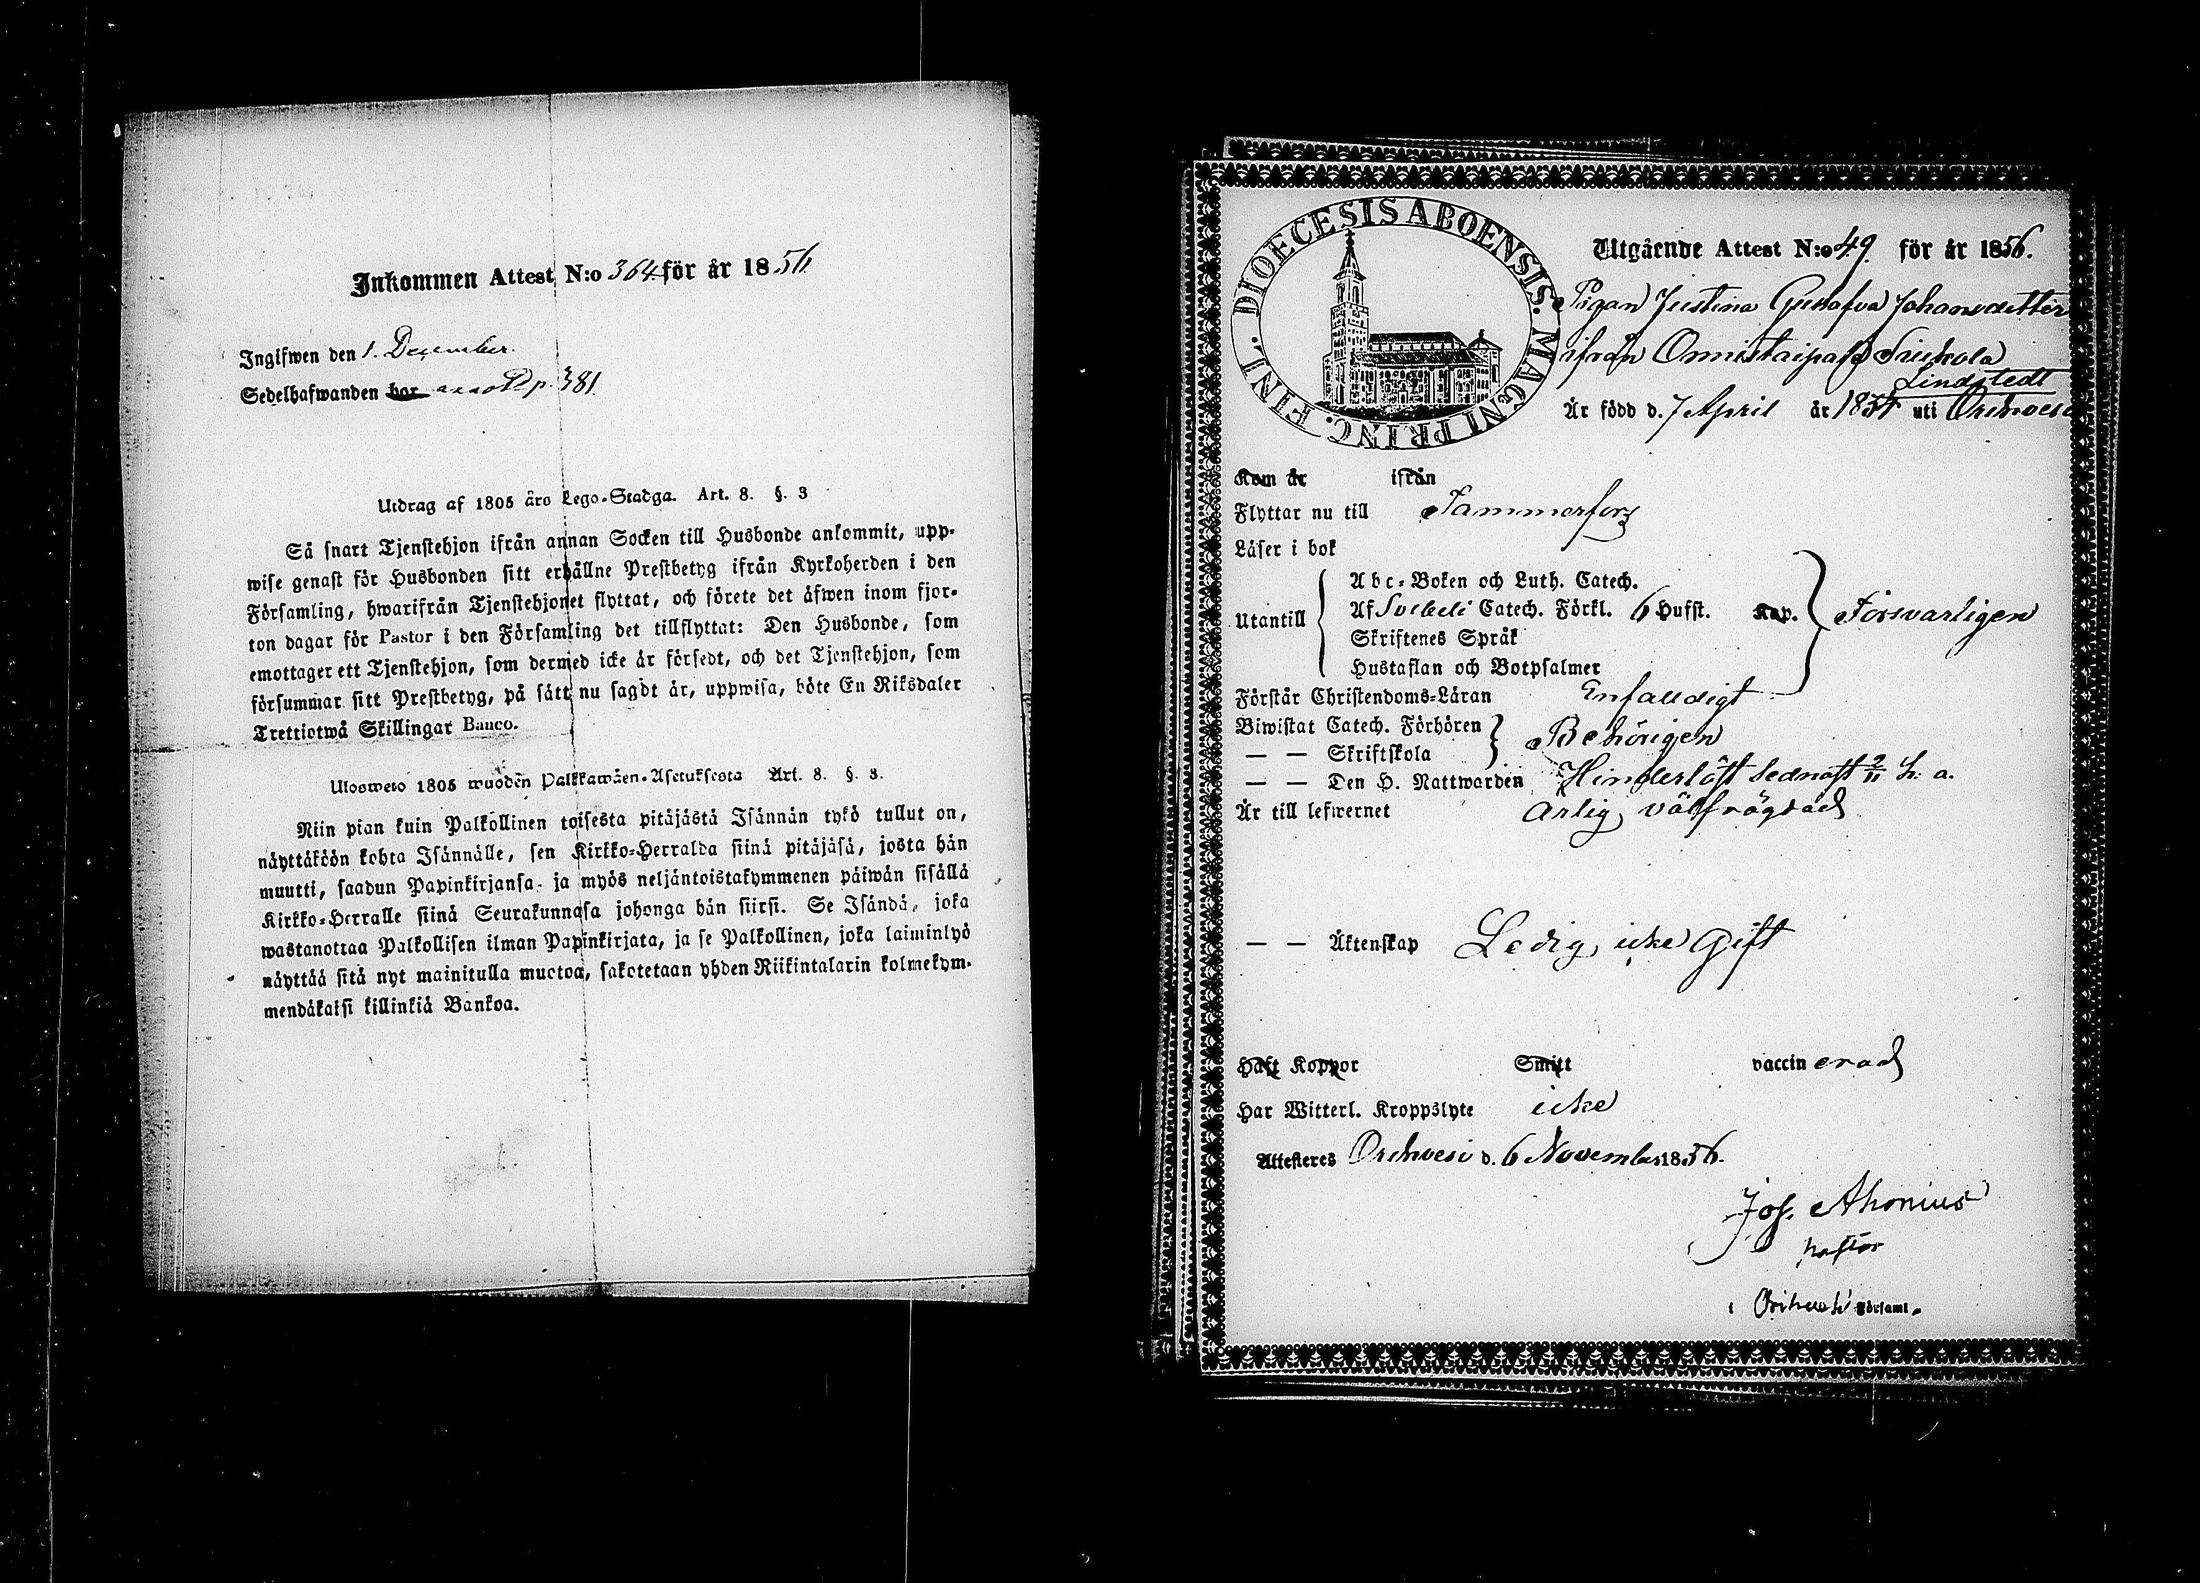 Inkommen Attest N:o 364 för år 1856
Ingifwen den 1. December.
Sedelhafwanden har annot. p. 381
Utdrag af 1805 års Lego-Stadga. Art. 8. §. 3
Så snart Tjenstehjon ifrån annan Socken till Husbonde ankommit, upp-
wise genast för Husbonden sitt erhållne Prestbetyg ifrån Kyrkoherden i den
Församling, hwarifrån Tjenstehjonet flyttat, och förete det äfwen inom fjor-
ton dagar för Pastor i den Församling det tillflyttat: Den Husbonde, som
emottager ett Tjenstehjon, som dermed icke är försedt, och det Tjenstehjon, som
försummar sitt Prestbetyg, på sätt nu sagdt är, uppwisa, böte En Riksdaler
Trettiotwå Skillingar Banco.
Ulosweto 1805 wuoden Palkkawäen-Asetuksesta Art. 8. §. 3.
Niin pian kuin Palkollinen toisesta pitäjästä Isännän tykö tullut on,
näyttäköön kohta Isännälle, sen Kirkko-Herralda siinä pitäjäsä, josta hän
muutti, saadun Papinkirjansa, ja myös neljäntoistakymmenen päiwän sisällä
Kirkko-Herralle siinä Seurakunnasa johonga hän siirsi. Se Isändä, joka
wastanottaa Palkollisen ilman Papinkirjata, ja se Palkollinen, joka laiminlyö
näyttää sitä nyt mainitulla muotoa, sakotetaan yhden Riikintalarin kolmekym-
mendäkaksi killinkiä Bankoa.
DIOECESIS ABOENSIS. MAGNI PRINC. FINL.
Utgående Attest N:o 49 för år 1856.
Pigan Justina Gustafva Johansdotter
ifrån Onnistaipale Siukola
Lindstedt
Är född d. 7 April år 1834 uti Orihvesi
Kom år ifrån
Flyttar nu till Tammerfors
Läser i bok
Abc-Boken och Luth. Catech.
Utantill Af Svebeli Catech. Förkl. 6 Hufst. Kap. Försvarligen
Skriftenes Språk
Hustaflan och Botpsalmer
Förstår Christendoms-Läran Enfaldigt
Biwistat Catech. Förhören
— — Skriftskola Behörigen
— — Den H. Nattwarden Hinderlöst sednast 2/11 h. a.
Är till lefwernet Ärlig, välfrägdad
— — Äktenskap Ledig, icke gift
Haft Koppor Smitt vaccinerad
Har Witterl. Kroppslyte icke
Attesteres Orihvesi d. 6 November 1856.
Jos. Ahonius
pastor
i Orihvesi Församl.